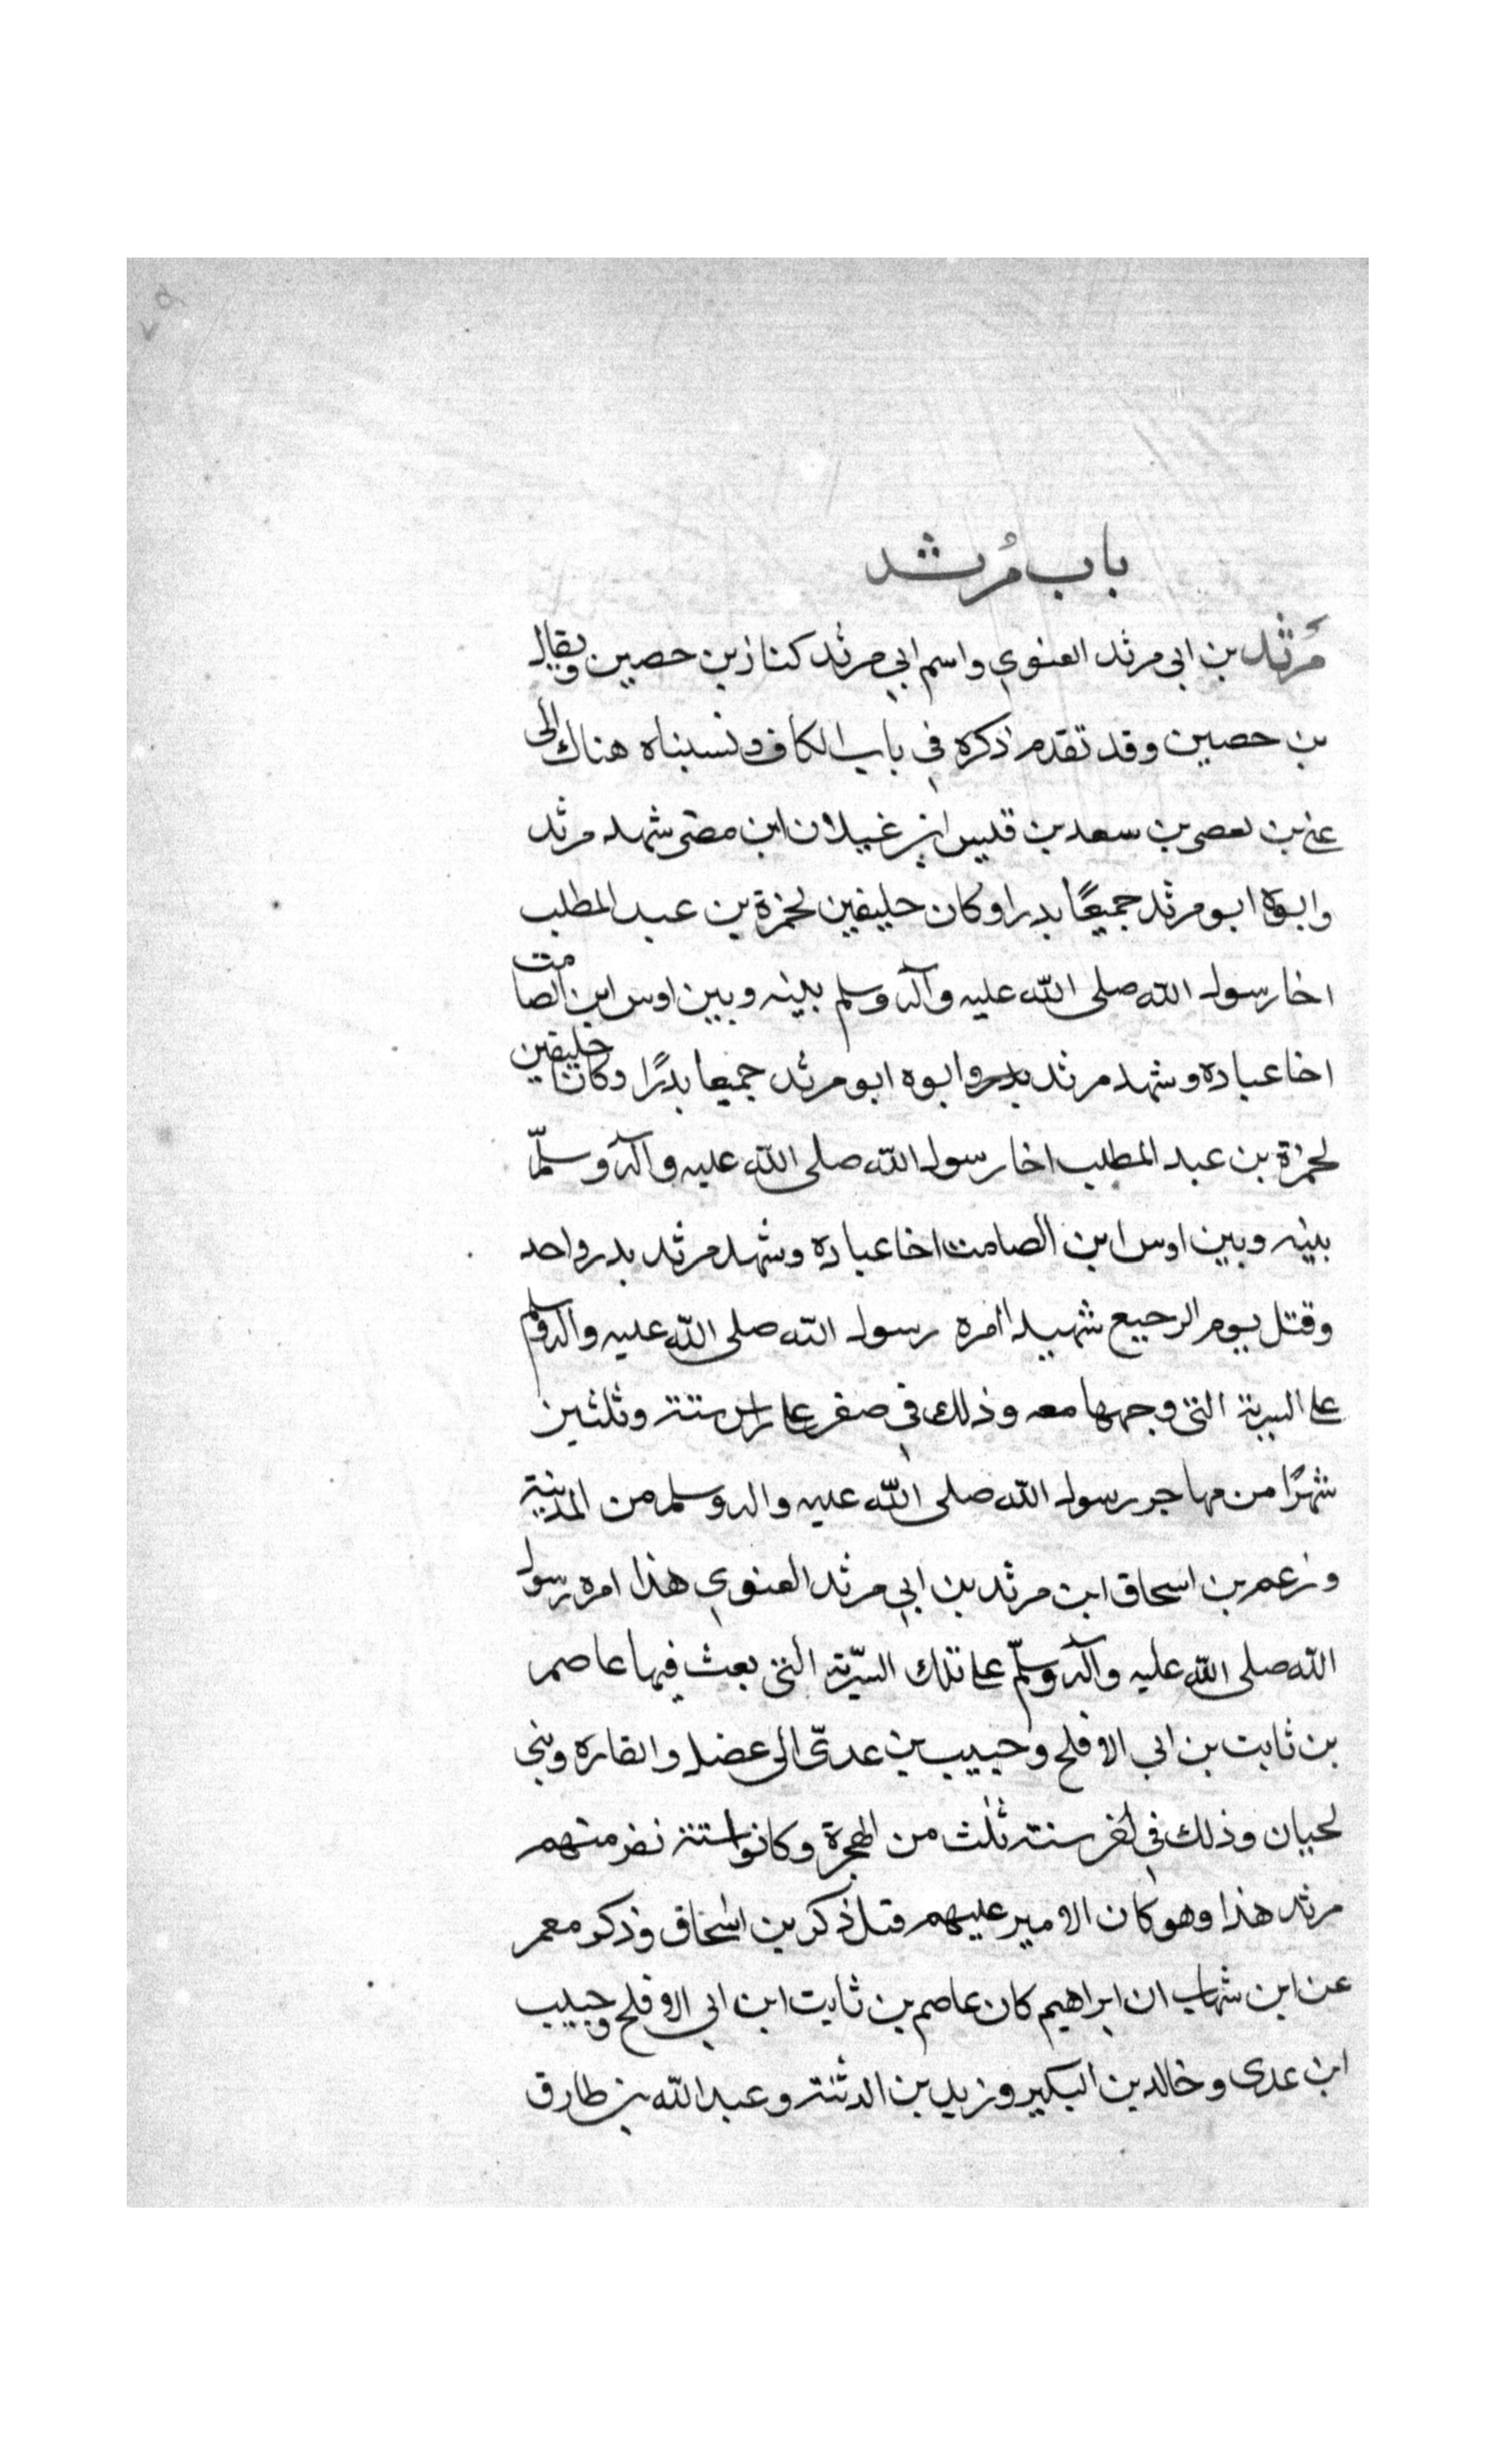 باب مُرثد
مَرثد بن ابي مرثد الغنوي واسم ابي مرثد كناز بن حصين ويقال
بن حصين وقد تقدم ذكره في باب الكاف ونسبناه هناك الى
غني بن يعصر بن سعد بن قيس بن غيلان ابن مضى شهد مرثد
وابوه ابو مرثد جميعًا بدرا وكان حليفين لحمزة بن عبد المطلب
اخا رسول الله صلى الله عليه وآله وسلم بينه وبين اوس ابن الصامت
اخا عباده وشهد مرثد بدر وابوه ابو مرثد جميعا بدرًا وكان حليفين
لحمزة بن عبد المطلب اخا رسول الله صلى الله عليه وآله وسلّم
بينه وبين اوس ابن الصامت اخا عباده وشهد مرثد بدر واحد
وقتل يوم الرجيع شهيدا امره رسول الله صلى الله عليه واله وسلم
على السرية التي وجهها معه وذلك في صفر على راس ستة وثلثين
شهرًا من مهاجر رسول الله صلى الله عليه واله وسلم من المدينة
وزعم بن اسحاق ابن مرثد بن ابي مرثد الغنوي هذا امره رسول
الله صلى الله عليه وآله وسلّم على تلك السّرية التي بعث فيها عاصم
بن ثابت بن ابي الافلح وحبيب بن عدىّ الى عضل والقاره وبني
لحيان وذلك في سنة ثلث من الهجرة وكانوا ستة نفر منهم
مرثد هذا وهو كان الامير عليهم قتل ذكر بن اسحاق وذكر معمر
عن ابن شهاب ان ابراهيم كان عاصم بن ثابت ابن ابي الافلح وحبيب
ابن عدى وخالد بن البكير وزيد بن الدثنة وعبد الله بن طارق